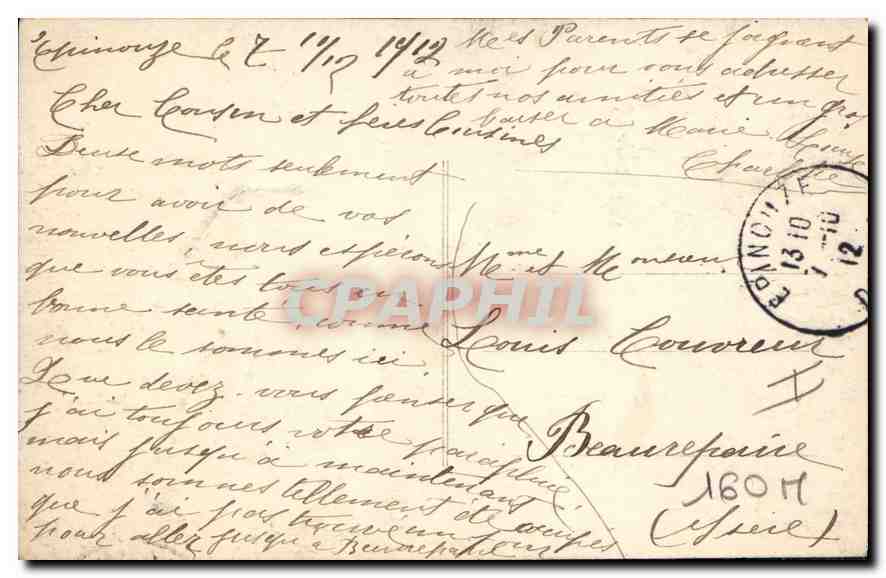 Epinouze le 7 10/12 1912
Cher Cousin et chères Cousines
Deux mots seulement
pour avoir de vos
nouvelles, nous espérons
que vous êtes tous en
bonne santé, comme
nous le sommes ici
Que devez-vous penser que
j'ai toujours votre parapluie
mais jusqu'à maintenant
nous sommes tellement de occupés
que j'ai pas trouvé un jour
pour aller jusqu'à Beaurepaire
Mes Parents se joignent
à moi pour vous adresser
toutes nos amitiés et un gros
baiser à Marie Louise
Mme et Monsieur
Louis Couvreur
Beaurepaire
(Isère)
160 M
EPINOUZE
13 10
7 -10
12
CPAPHIL